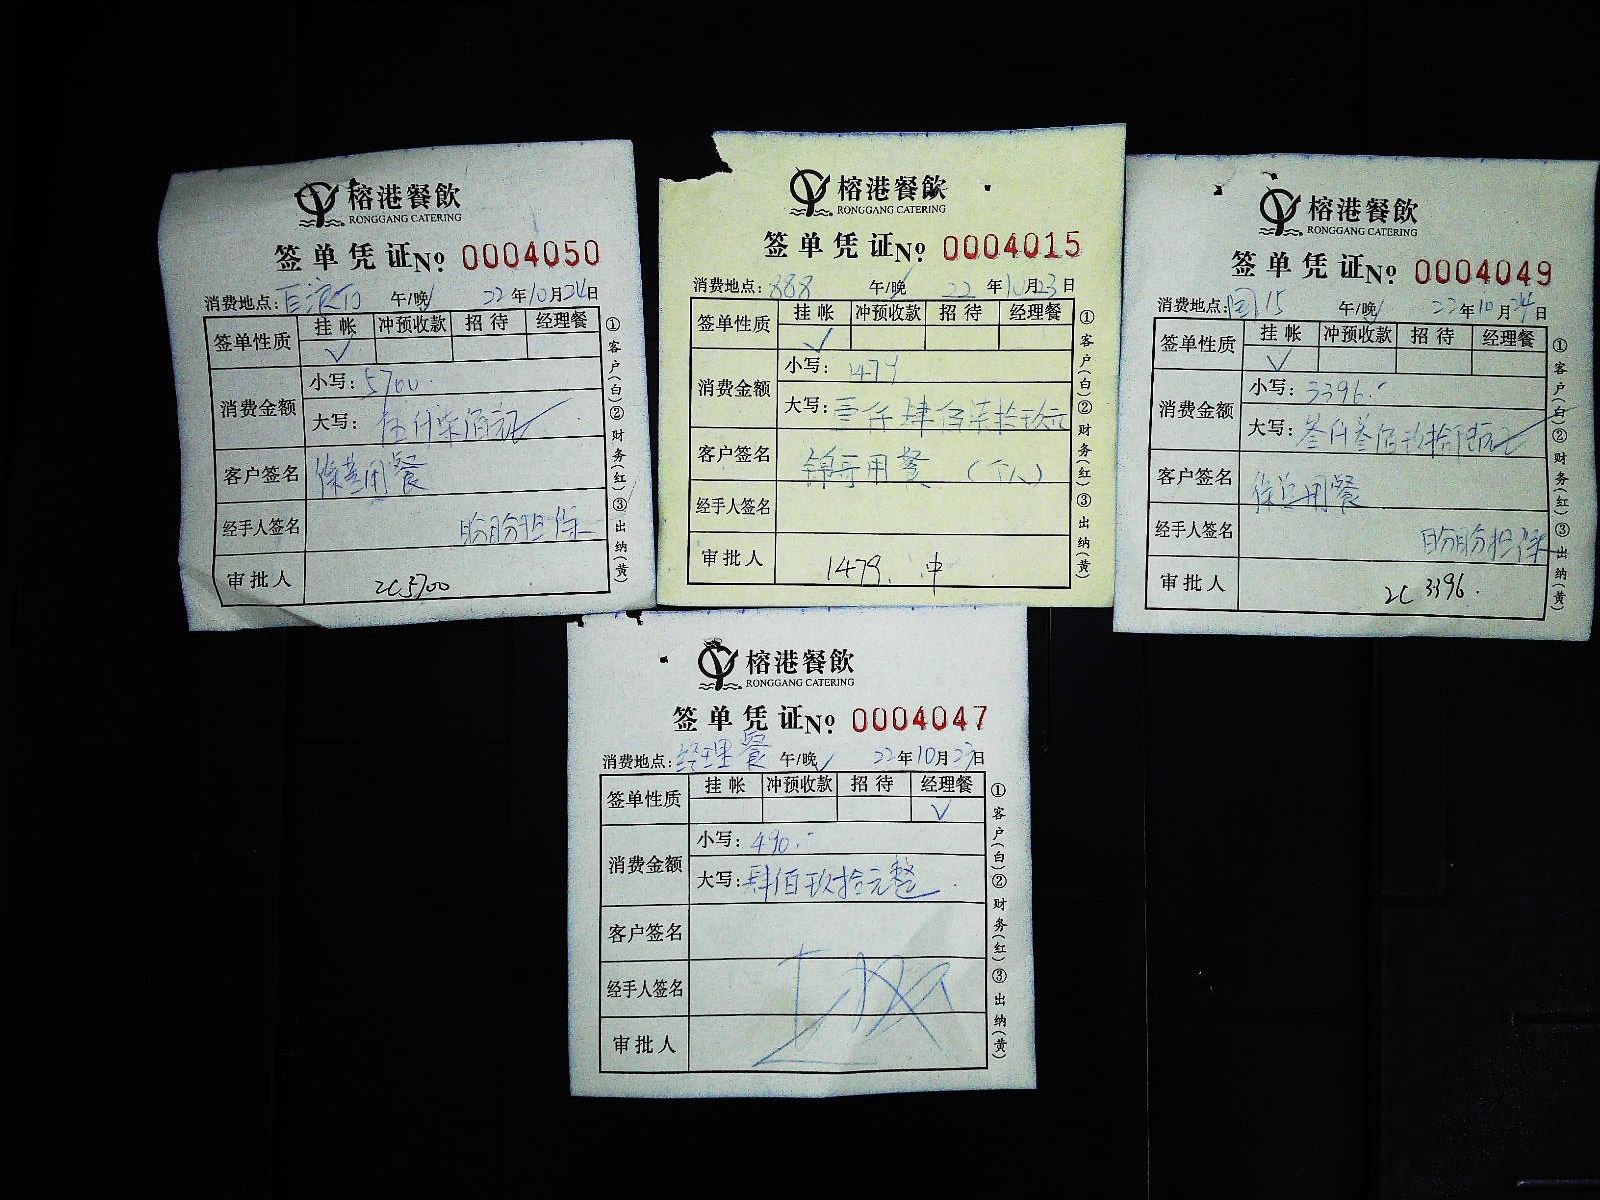 榕港餐飲
RONGGANG CATERING
签单凭证№ 0004050
消费地点: 午/晚 22年10月24日
签单性质 挂帐 冲预收款 招待 经理餐
✓
消费金额 小写:5700.
大写:伍仟柒佰元正
客户签名 徐总用餐
经手人签名 盼盼担保
审批人 2C5700
①客户(白)②财务(红)③出纳(黄)
榕港餐飲
RONGGANG CATERING
签单凭证№ 0004015
消费地点:888 午/晚 22年10月23日
签单性质 挂帐 冲预收款 招待 经理餐
✓
消费金额 小写:1479
大写:壹仟肆佰柒拾玖元
客户签名 锦哥用餐(个人)
经手人签名
审批人 1479. 冲
①客户(白)②财务(红)③出纳(黄)
榕港餐飲
RONGGANG CATERING
签单凭证№ 0004049
消费地点:阁15 午/晚 22年10月24日
签单性质 挂帐 冲预收款 招待 经理餐
✓
消费金额 小写:3396.-
大写:叁仟叁佰玖拾陆元正
客户签名 徐总用餐
经手人签名 盼盼担保
审批人 2C 3396.
①客户(白)②财务(红)③出纳(黄)
榕港餐飲
RONGGANG CATERING
签单凭证№ 0004047
消费地点:经理餐 午/晚✓ 22年10月23日
签单性质 挂帐 冲预收款 招待 经理餐
✓
消费金额 小写:490.-
大写:肆佰玖拾元整
客户签名
经手人签名
审批人
①客户(白)②财务(红)③出纳(黄)